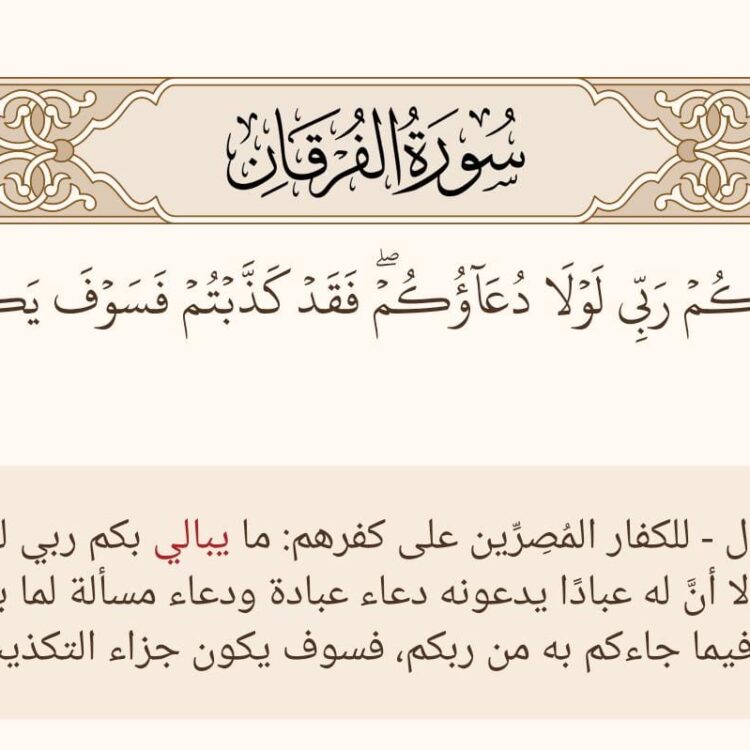 سُورَةُ الفُرۡقَانِ
كُمۡ رَبِّي لَوۡلَا دُعَآؤُكُمۡۖ فَقَدۡ كَذَّبۡتُمۡ فَسَوۡفَ
- للكفار المُصِرِّين على كفرهم: ما يبالي بكم ربي
أنَّ له عبادًا يدعونه دعاء عبادة ودعاء مسألة لما
فيما جاءكم به من ربكم، فسوف يكون جزاء